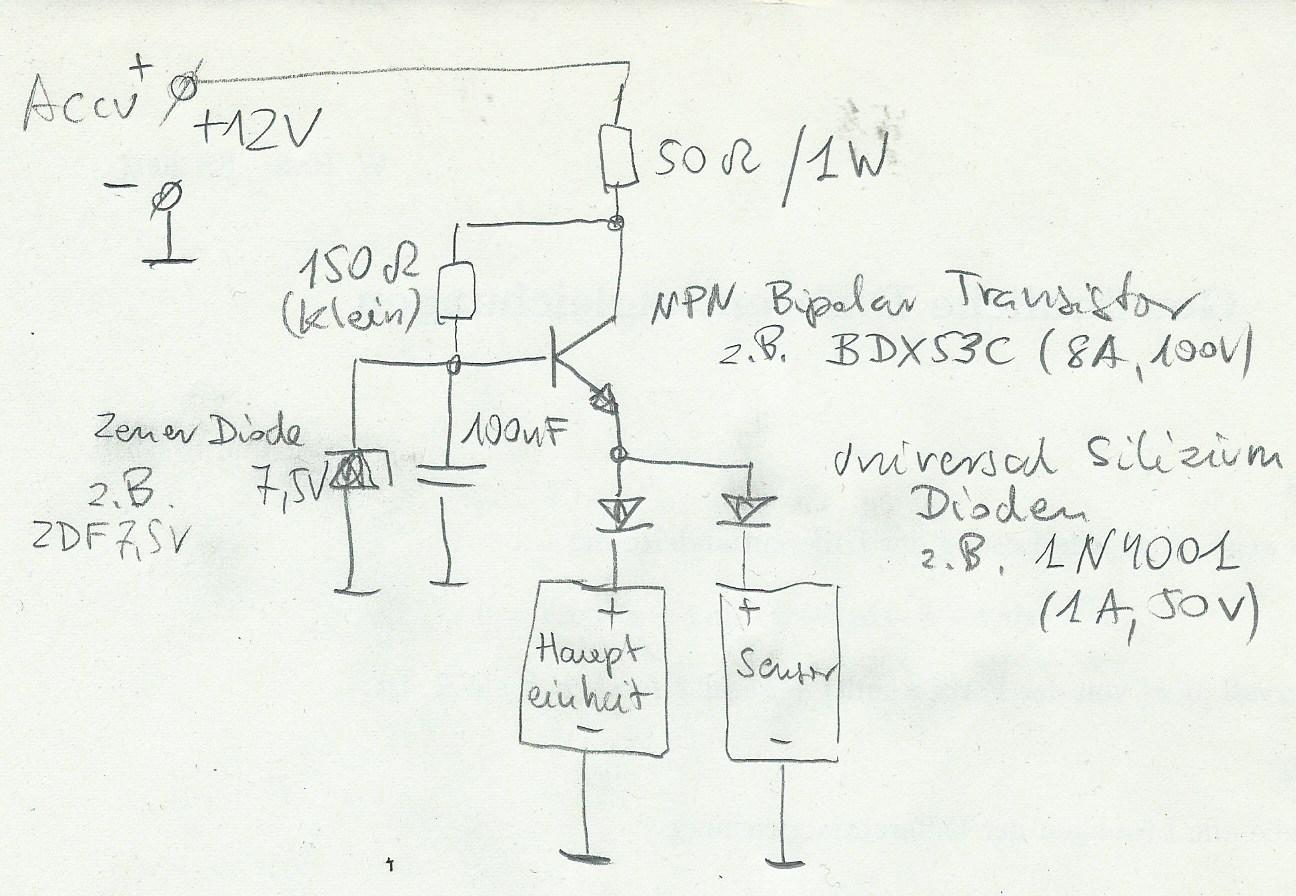 Accu +
+12V
-
50 Ω / 1W
150 Ω
(klein)
NPN Bipolar Transistor
z.B. BDX53C (8A, 100V)
Zener Diode
7,5V
z.B.
ZDF7,5V
100nF
Universal Silizium
Dioden
z.B. 1N4001
(1A, 50V)
+
Haupt
einheit
-
+
Sensor
-